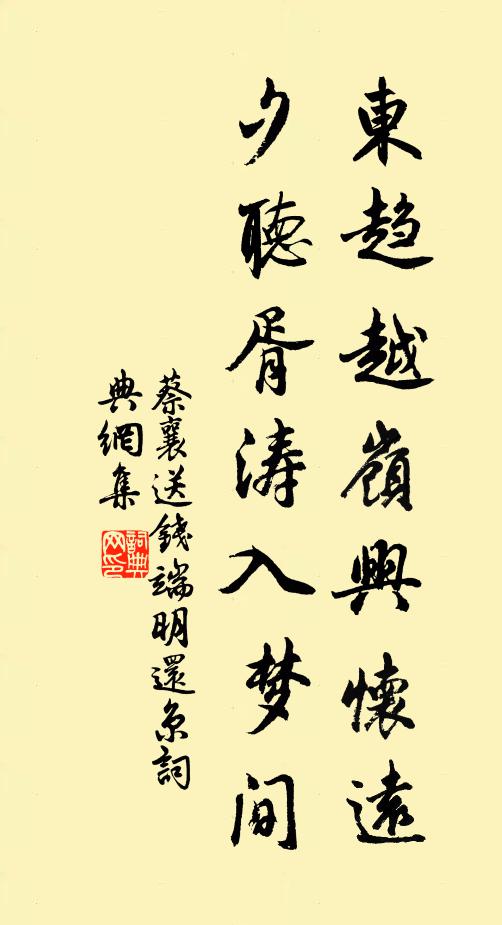 東趋越嶺興懷遠
夕聽胥涛入梦间
蔡襄送錢端明還京詞
典網集
詞典
网印